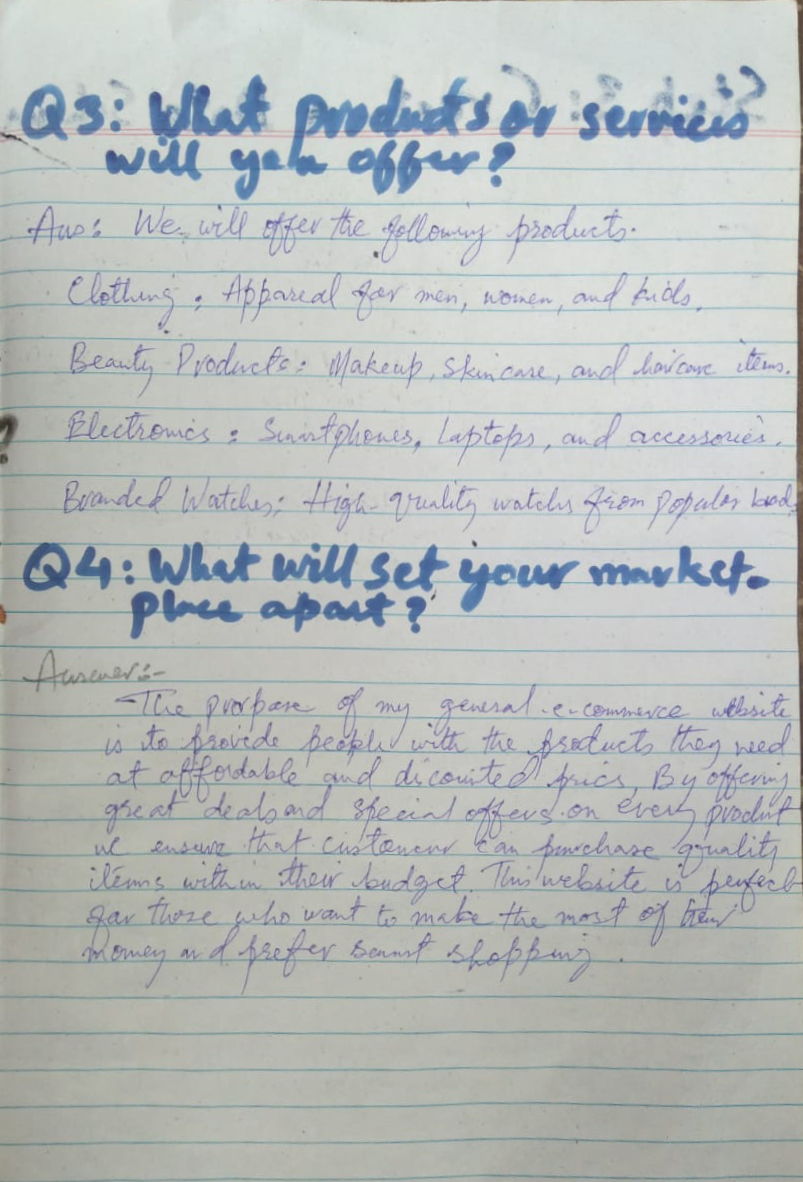 Q3: What products or services
will you offer?
Ans: We will offer the following products.
Clothing: Appareal for men, women, and kids.
Beauty Products: Makeup, skincare, and haircare items.
Electronics: Smartphones, Laptops, and accessories.
Branded Watches: High-quality watchs from popular
Q4: What will set your market-
place apart?
Answer:-
The porpase of my general e-commerce website
is to provide people with the products they need
at affordable and dicounted prics, By offering
great deals and special offers on every product
we ensure that customer can purchase quality
items within their budget. This website is perfect
for those who want to make the most of their
money and prefer smart shopping.